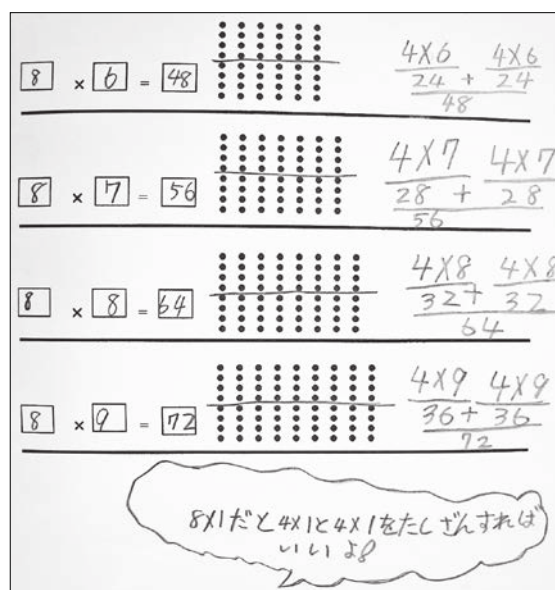 8 × 6 = 48
4×6 4×6
24 + 24
48
8 × 7 = 56
4×7 4×7
28 + 28
56
8 × 8 = 64
4×8 4×8
32+ 32
64
8 × 9 = 72
4×9 4×9
36+ 36
72
8×1だと4×1と4×1をたしざんすれば
いいよ。